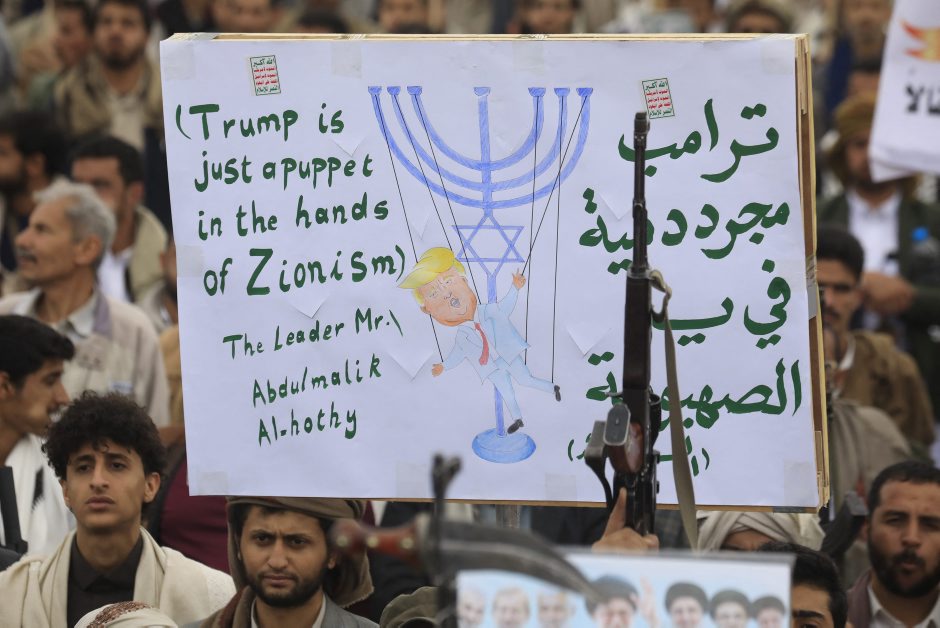 (Trump is
just a puppet
in the hands
of Zionism)
The Leader Mr.\
Abdulmalik
Al-hothy
ترامب
مجرد دمية
في
الصهيونية